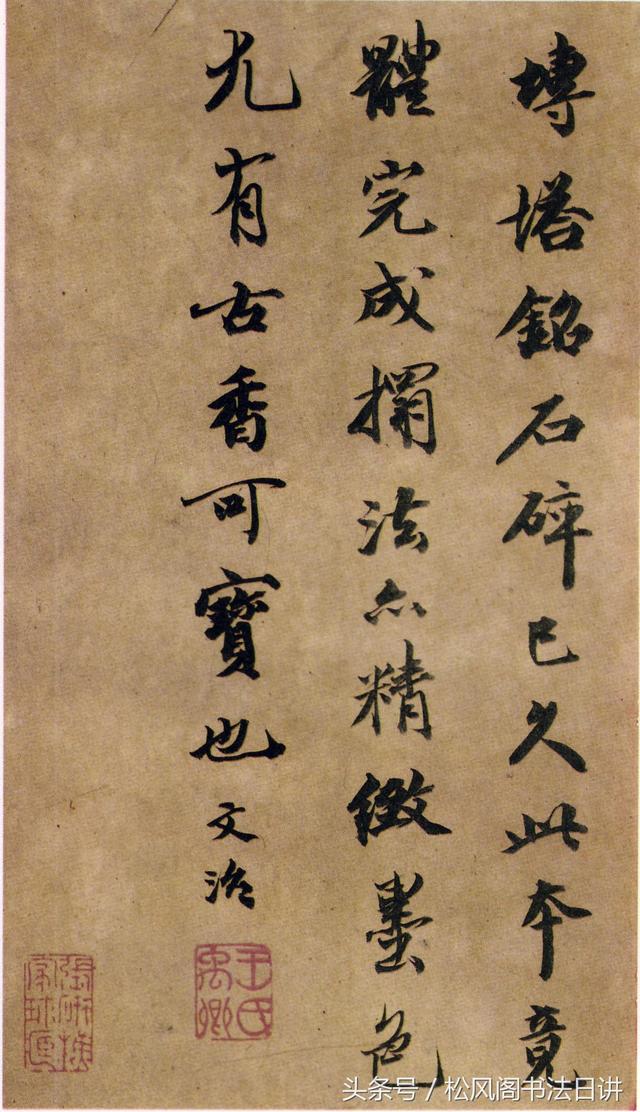 塼塔銘石碎已久此本竟
體完成搨法亦精緻墨色
尤有古香可寶也
文治
王氏禹卿
头条号／松风阁书法日讲